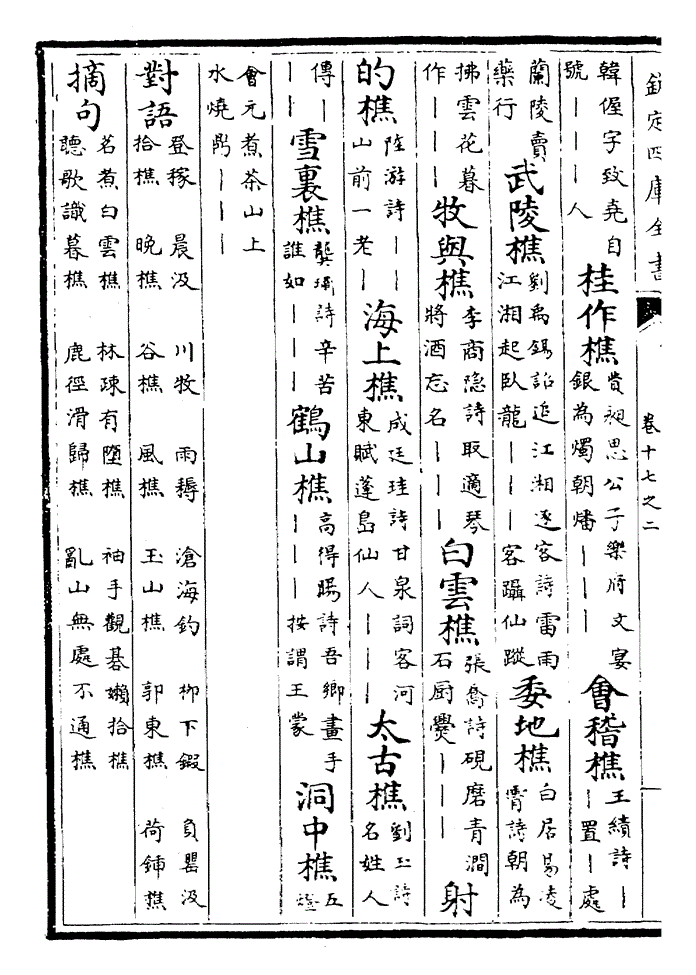 欽定四庫全書 卷十七之二
韓偓字致堯自號｜｜｜人 桂作樵 費昶思公子樂府文宴銀為燭朝燔｜｜｜ 會稽樵 王績詩｜｜置｜處
蘭陵賣藥行 武陵樵 劉禹錫詒追江湘逐客詩雷雨江湘起臥龍｜｜｜客躡仙蹤 委地樵 白居易凌霄詩朝為
拂雲花暮作｜｜｜ 牧與樵 李商隱詩取適琴將酒忘名｜｜｜ 白雲樵 張喬詩硯磨青澗石厨爨｜｜｜ 射
的樵 陸游詩｜｜山前一老｜ 海上樵 成廷珪詩甘泉詞客河東賦蓬島仙人｜｜｜ 太古樵 劉玉詩名姓人
傳｜｜｜ 雪裏樵 龔璛詩辛苦誰如｜｜｜ 鶴山樵 高得暘詩吾鄉畫手｜｜｜按謂王蒙 洞中樵 五燈
會元煮茶山上水燒鼎｜｜｜
對語 登稼 拾樵 晨汲 晚樵 川牧 谷樵 雨耨 風樵 滄海釣 玉山樵 柳下鍛 郭東樵 負罌汲 荷鍤樵
摘句 茗煮白雲樵 林疎有墮樵 袖手觀碁嬾拾樵 聽歌識暮樵 鹿徑滑歸樵 亂山無處不通樵